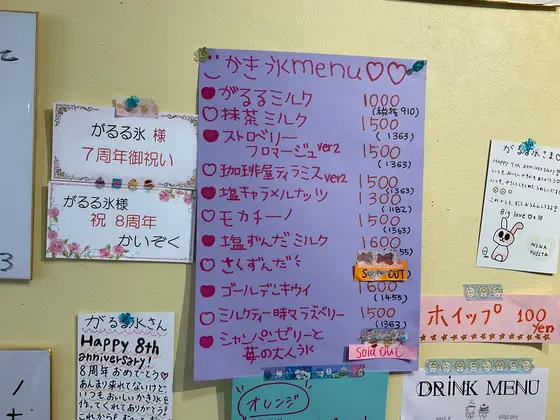 かき氷menu♡♡
がるるミルク 1000
(税抜 910)
抹茶ミルク 1500
(1363)
ストロベリー
フロマージュver2 1500
(1363)
珈琲屋ティラミスver2 1500
(1363)
塩キャラメルナッツ 1300
(1182)
モカチーノ 1500
(1363)
塩ずんだミルク 1600
さくずんだ
SOLD OUT
ゴールデンキウイ 1600
(1455)
ミルクティー時々ラズベリー 1500
(1363)
シャンパンゼリーと
苺の大人氷
Sold OUT
がるる氷 様
7周年御祝い
がるる氷様
祝 8周年
かいぞく
がるる氷さん
Happy 8th
anniversary!
8周年おめでとう
あんまり来れてないけど
いつもおいしいかき氷を
作ってくれてありがとう!
これからも
がるる氷さま
Happy 7th anniversary
Big love
NINA
FUJITA
ホイップ 100
yen
DRINK MENU
オレンジ